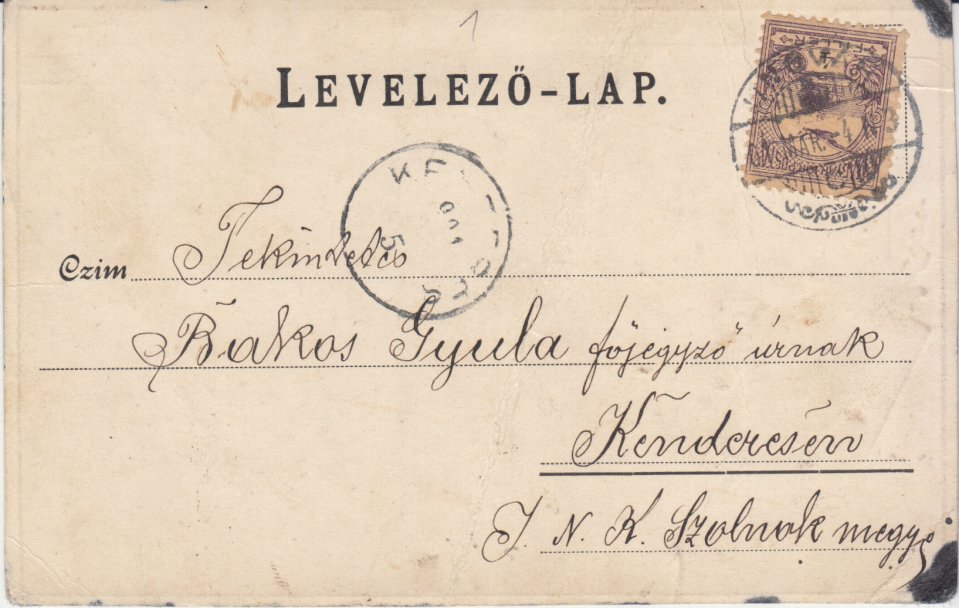 1
LEVELEZŐ-LAP.
FILLÉR
MAR. 4
900
5
Czim Tekintetes
Bakos Gyula főjegyző úrnak
Kenderesén
J. N. K. Szolnok megye